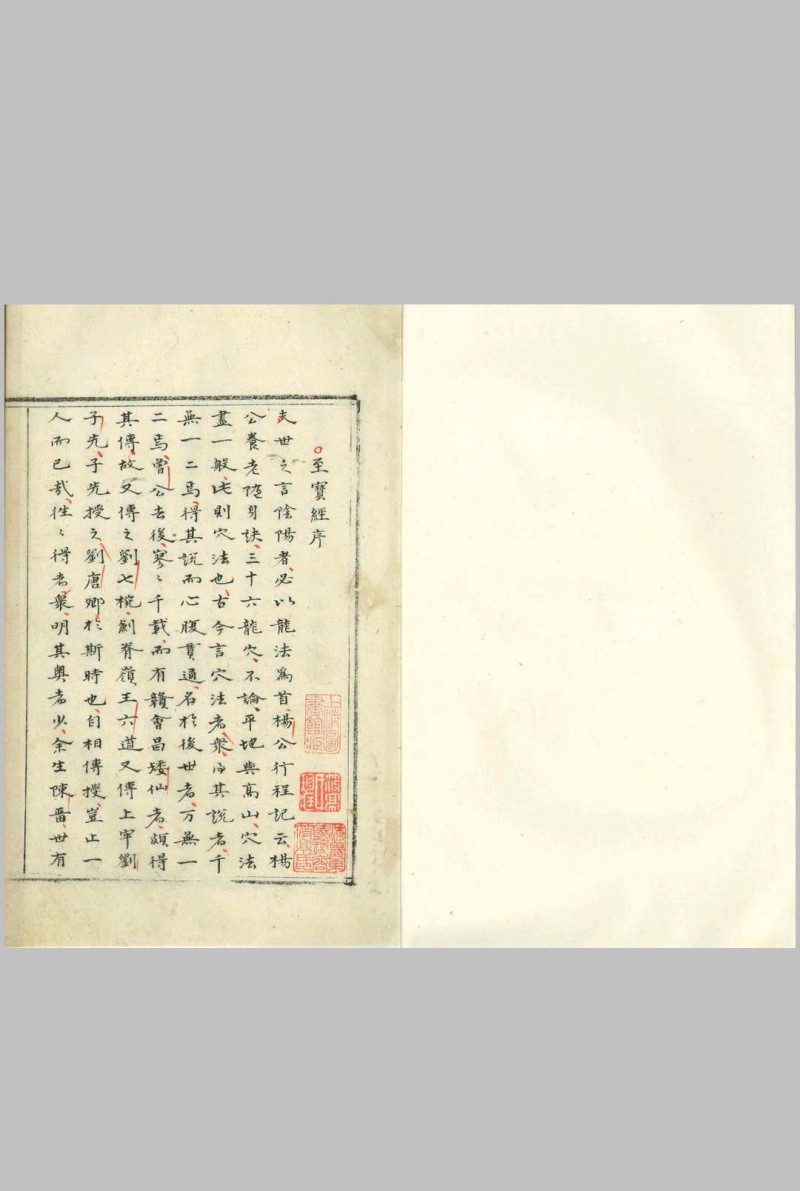 至寶經序
夫世之言陰陽者必以龍法爲首楊公行程記云楊
公養老隨身訣三十六龍穴不論平地與高山穴法
盡一般此則穴法也古今言穴法者衆得其說者千
無一二焉得其說而心腹貫通名於後世者万無一
二焉曾公去後寥〻千載而有贛會昌矮仙者頗得
其傳故又傳之劉七椀㓮脊嶺王六道又傳上牢劉
子先子先授之劉唐卿於斯時也自相傳授豈止一
人而已哉徃〻得者衆明其奧者少余生陳畨世有
上海圖書館藏